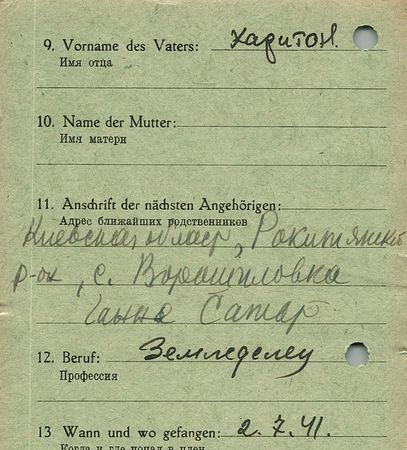 9. Vorname des Vaters: Харитон.
Имя отца
10. Name der Mutter:
Имя матери
11. Anschrift der nächsten Angehörigen:
Адрес ближайших родственников
Киевская област, Рокитянский
р-он, с. Ворошиловка
Ганна Сатар
12. Beruf: Земледелец
Профессия
13 Wann und wo gefangen: 2.7.41.
Когда и где попал в плен